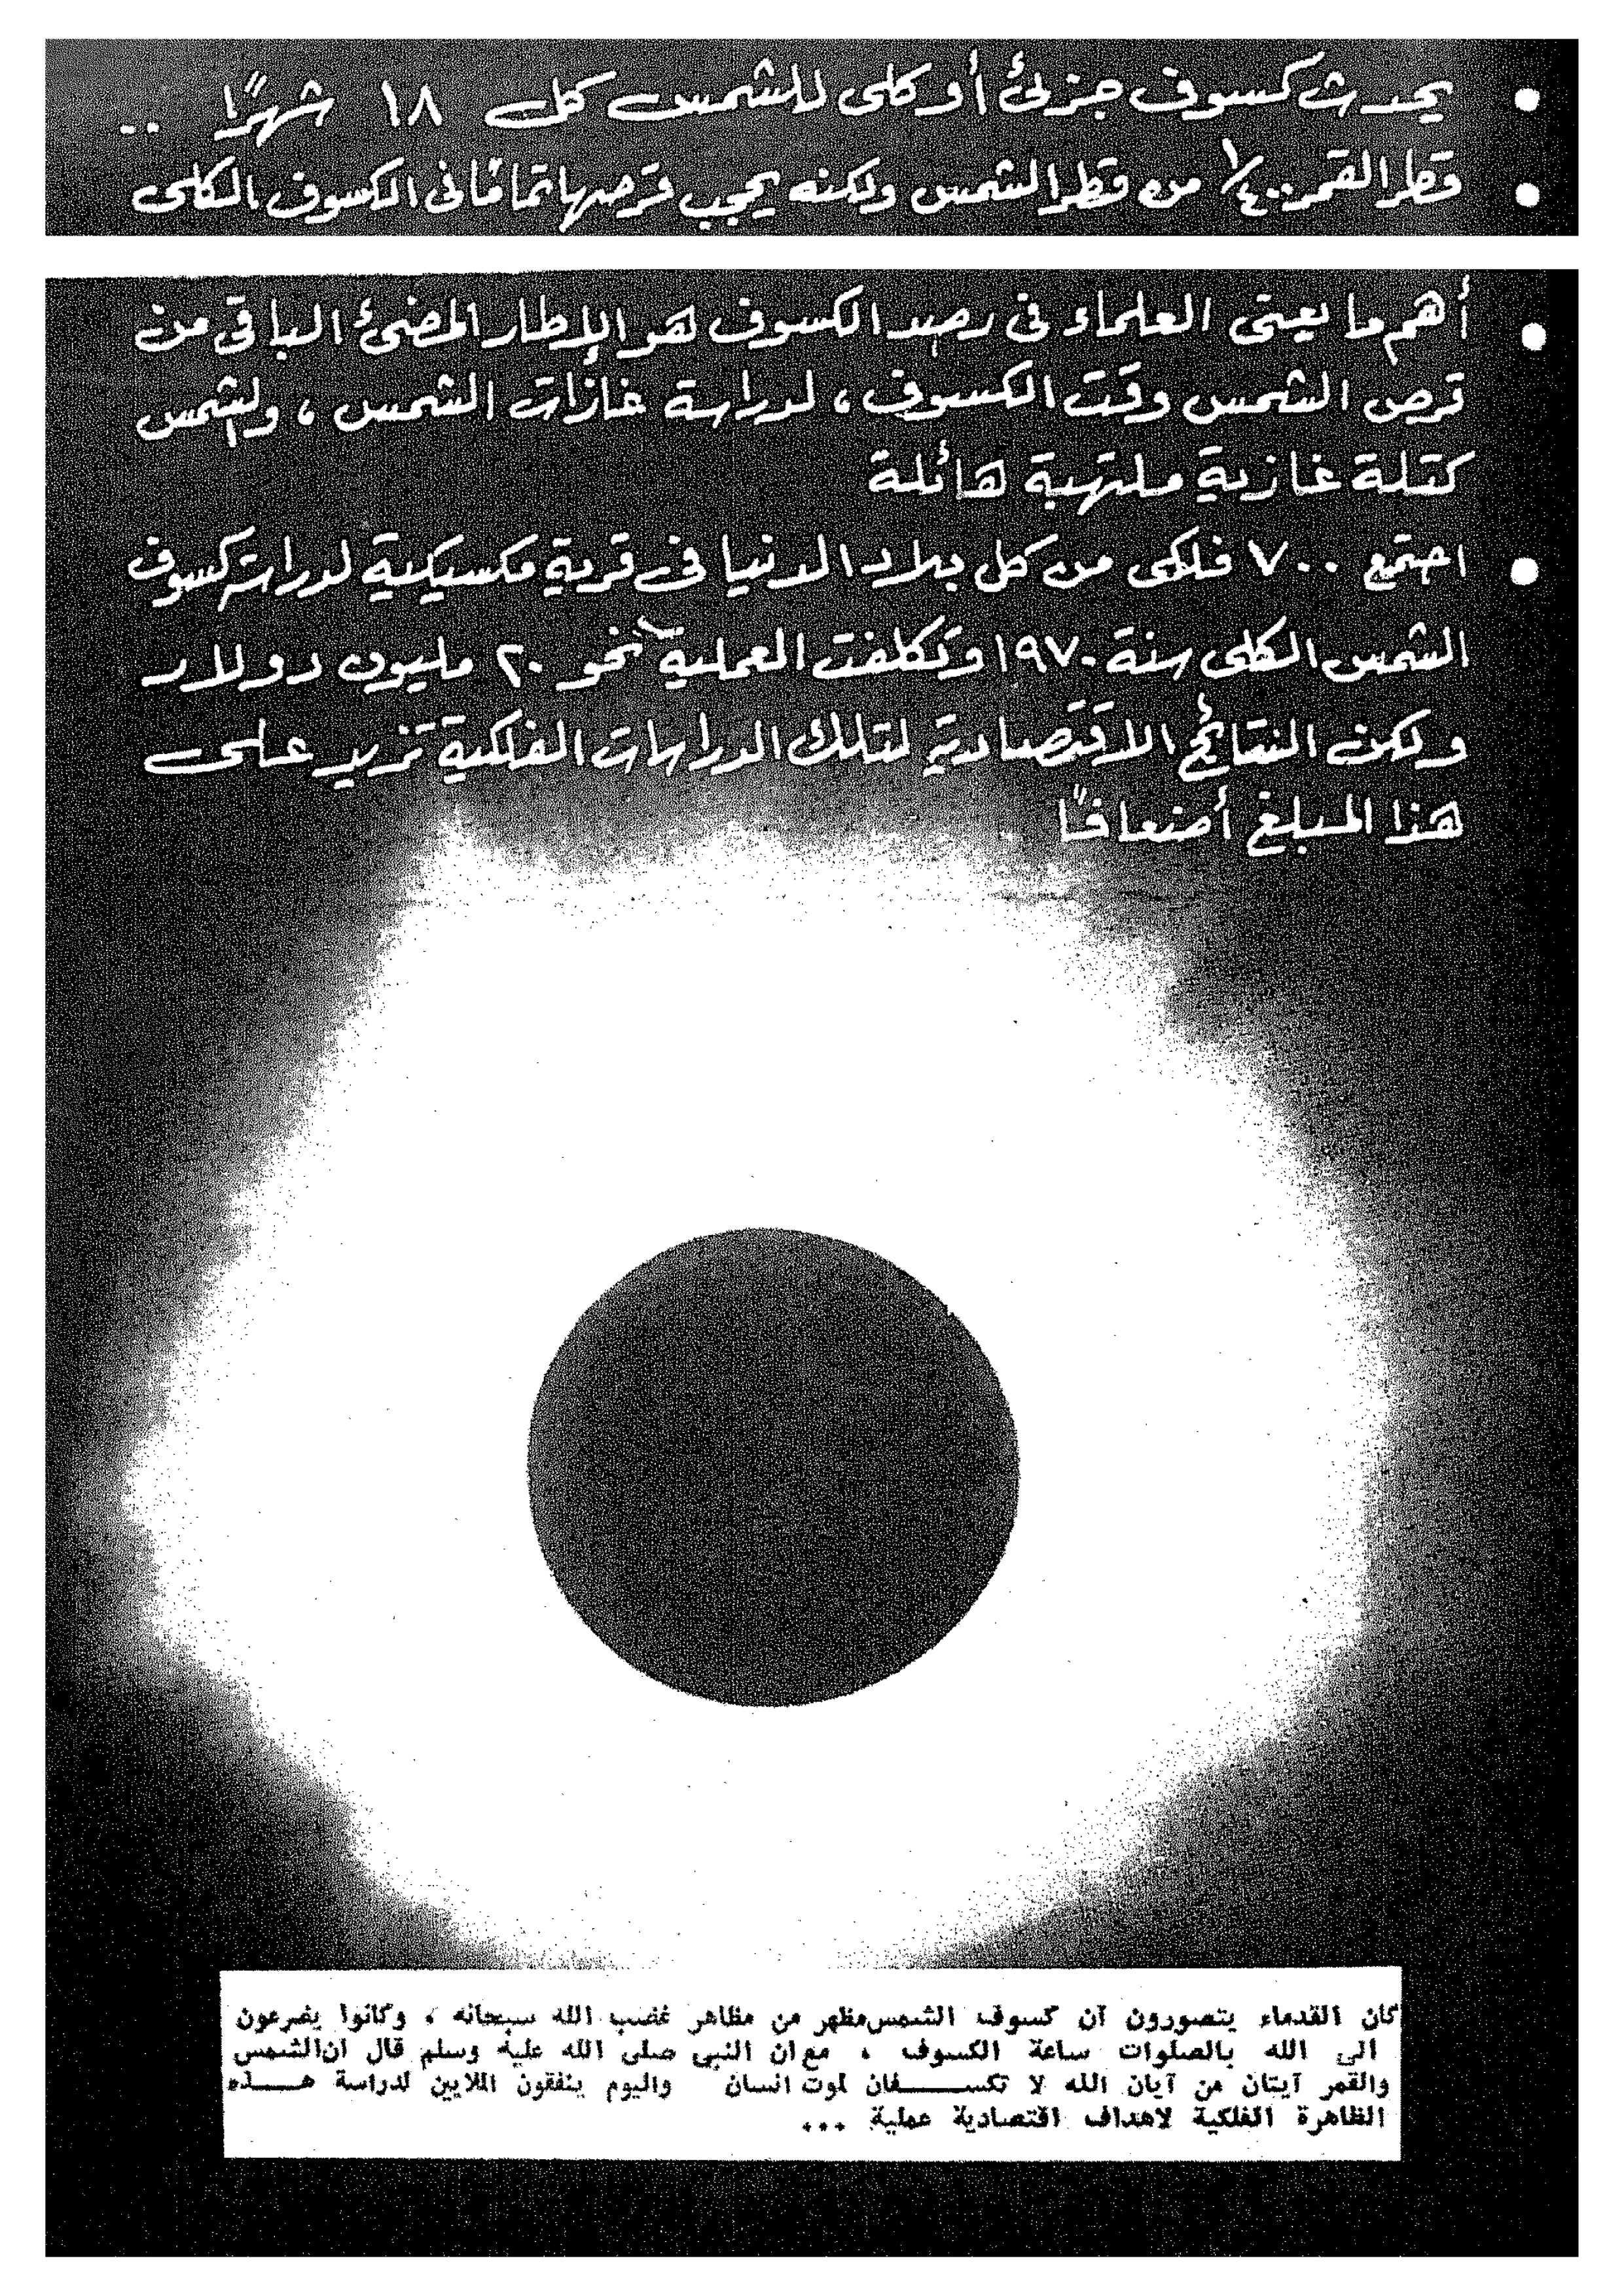 • يحدث كسوف جزئى أو كلى للشمس كل ١٨ شهرًا ..
• قطر القمر ١/٤٠٠ من قطر الشمس ولكنه يحجب قرصها تمامًا فى الكسوف الكلى
• أهم ما يعنى العلماء فى رصد الكسوف هو الإطار المضئ الباقى من
قرص الشمس وقت الكسوف، لدراسة غازات الشمس، والشمس
كتلة غازية ملتهبة هائلة
• اجتمع ٧٠٠ فلكى من كل بلاد الدنيا فى قرية مكسيكية لدراسة كسوف
الشمس الكلى سنة ١٩٧٠ وتكلفت العملية نحو ٢٠ مليون دولار
ولكن النتائج الاقتصادية لتلك الدراسات الفلكية تزيد على
هذا المبلغ أضعافًا
كان القدماء يتصورون أن كسوف الشمس مظهر من مظاهر غضب الله سبحانه ، وكانوا يضرعون
الى الله بالصلوات ساعة الكسوف ، مع ان النبي صلى الله عليه وسلم قال ان الشمس
والقمر آيتان من آيان الله لا تكســفان لموت انسان واليوم ينفقون الملايين لدراسة هــذه
الظاهرة الفلكية لاهداف اقتصادية عملية ...